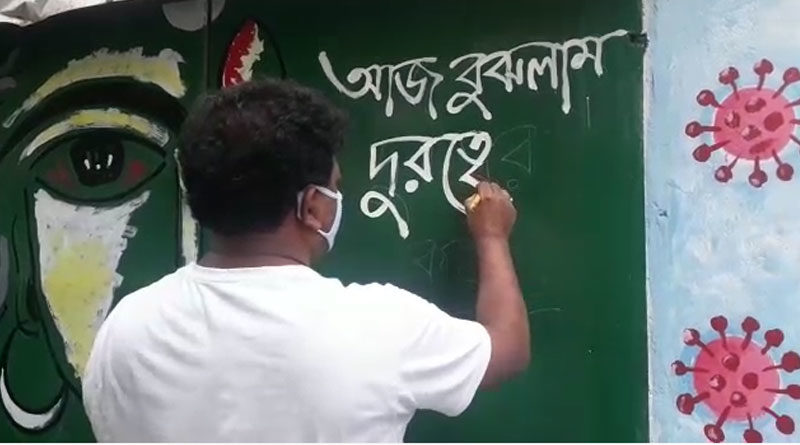 আজ বুঝলাম
দুরত্বে